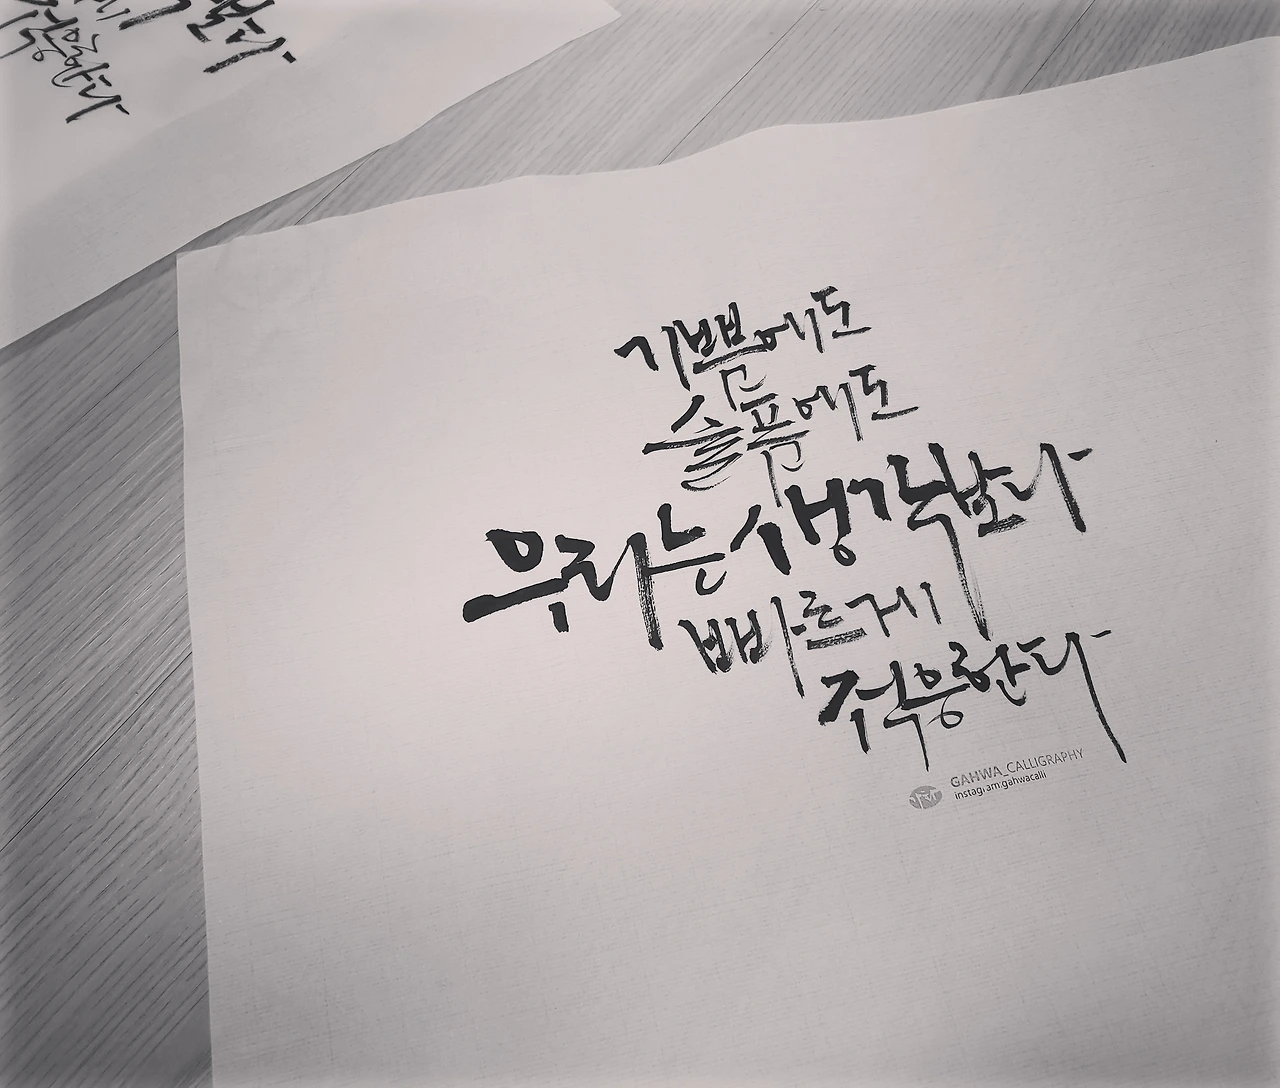 기쁨에도
슬픔에도
우리는 생각보다
빠르게
적응한다
GAHWA_CALLIGRAPHY
instagram:gahwacalli